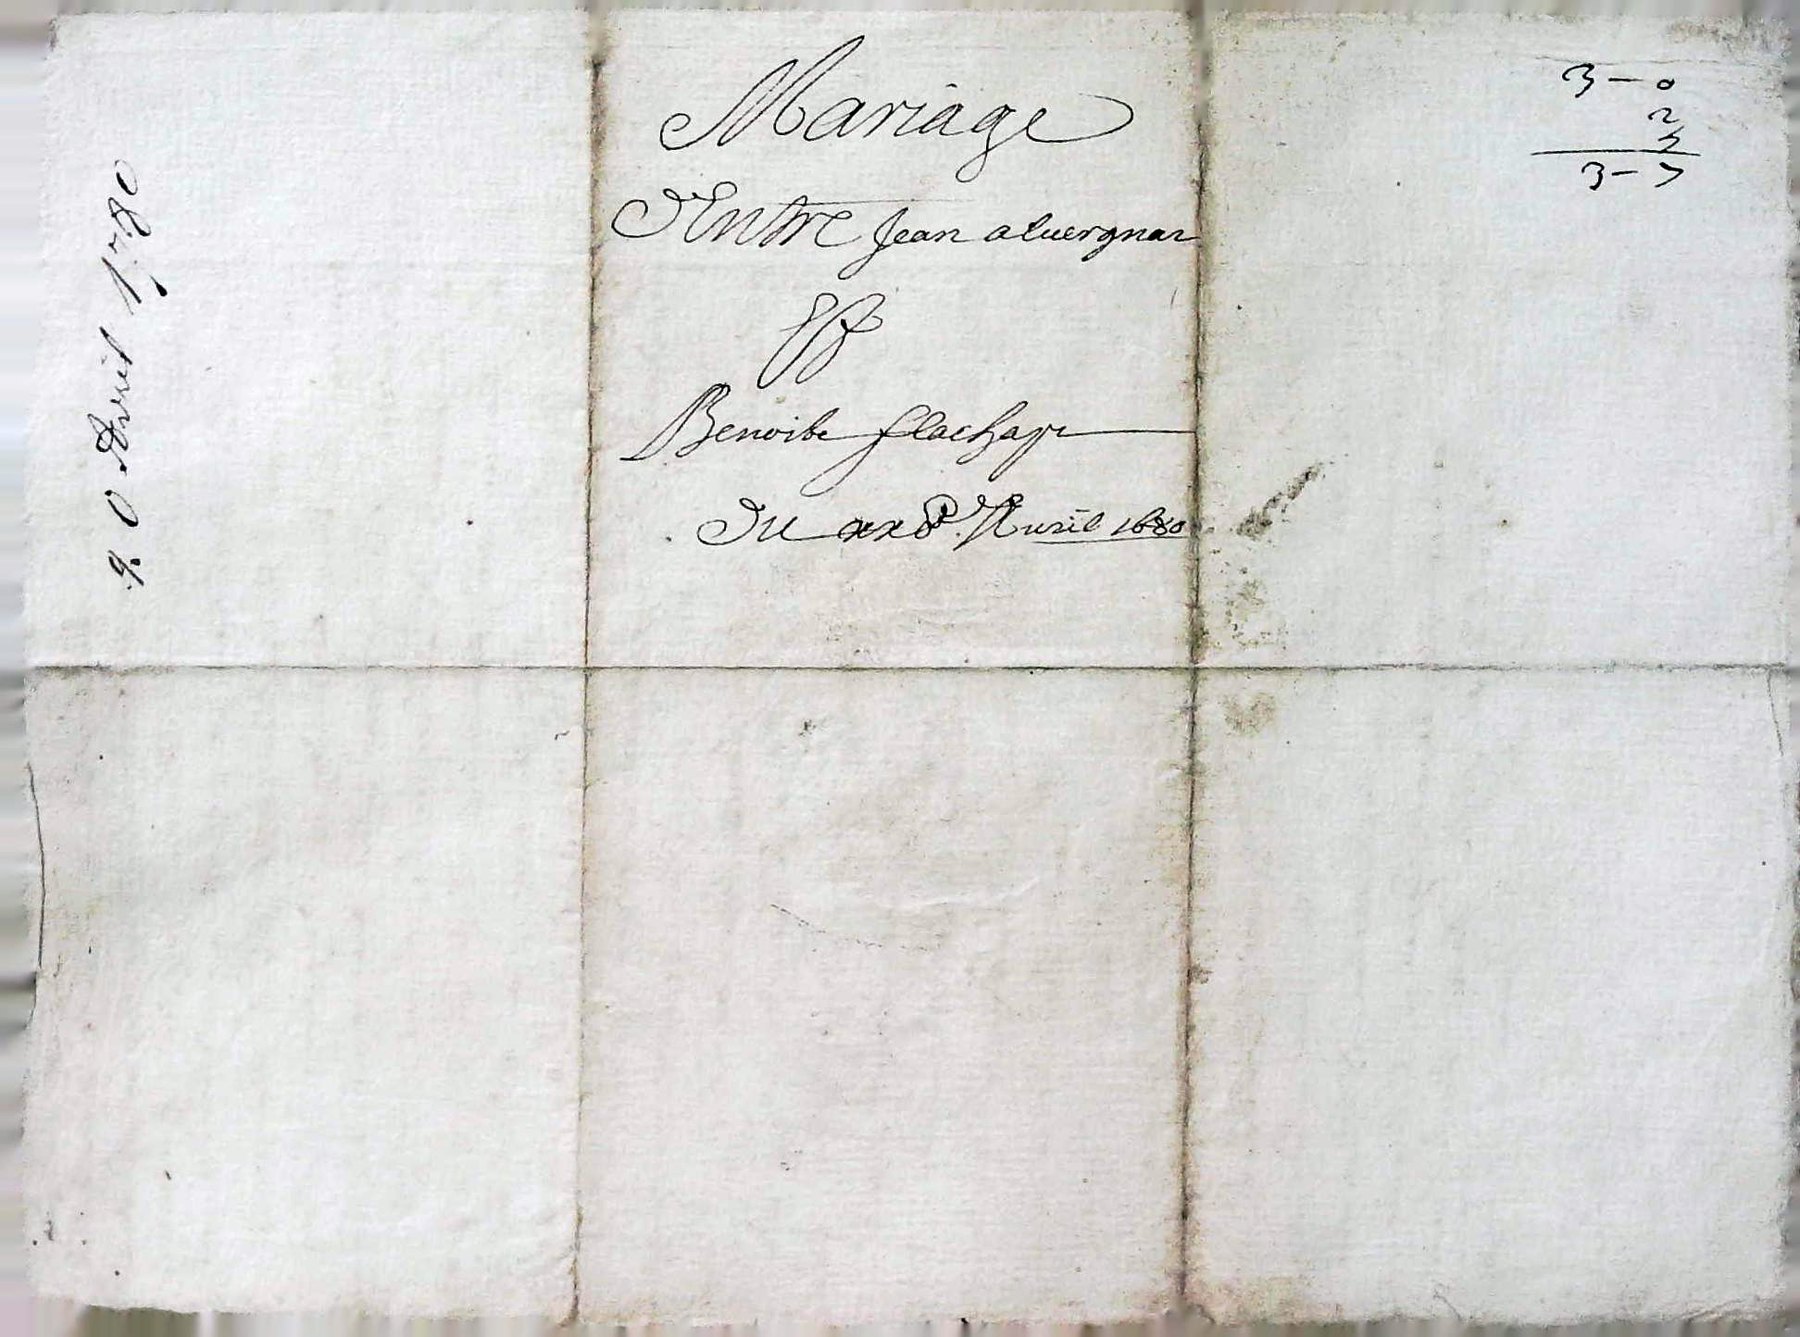 Mariage
d'Entre Jean aluergnar
Et
Benoite flachapt
Du xx8e. Auril 1680
3 - 0
2
5
3 - 7
Avril 1780